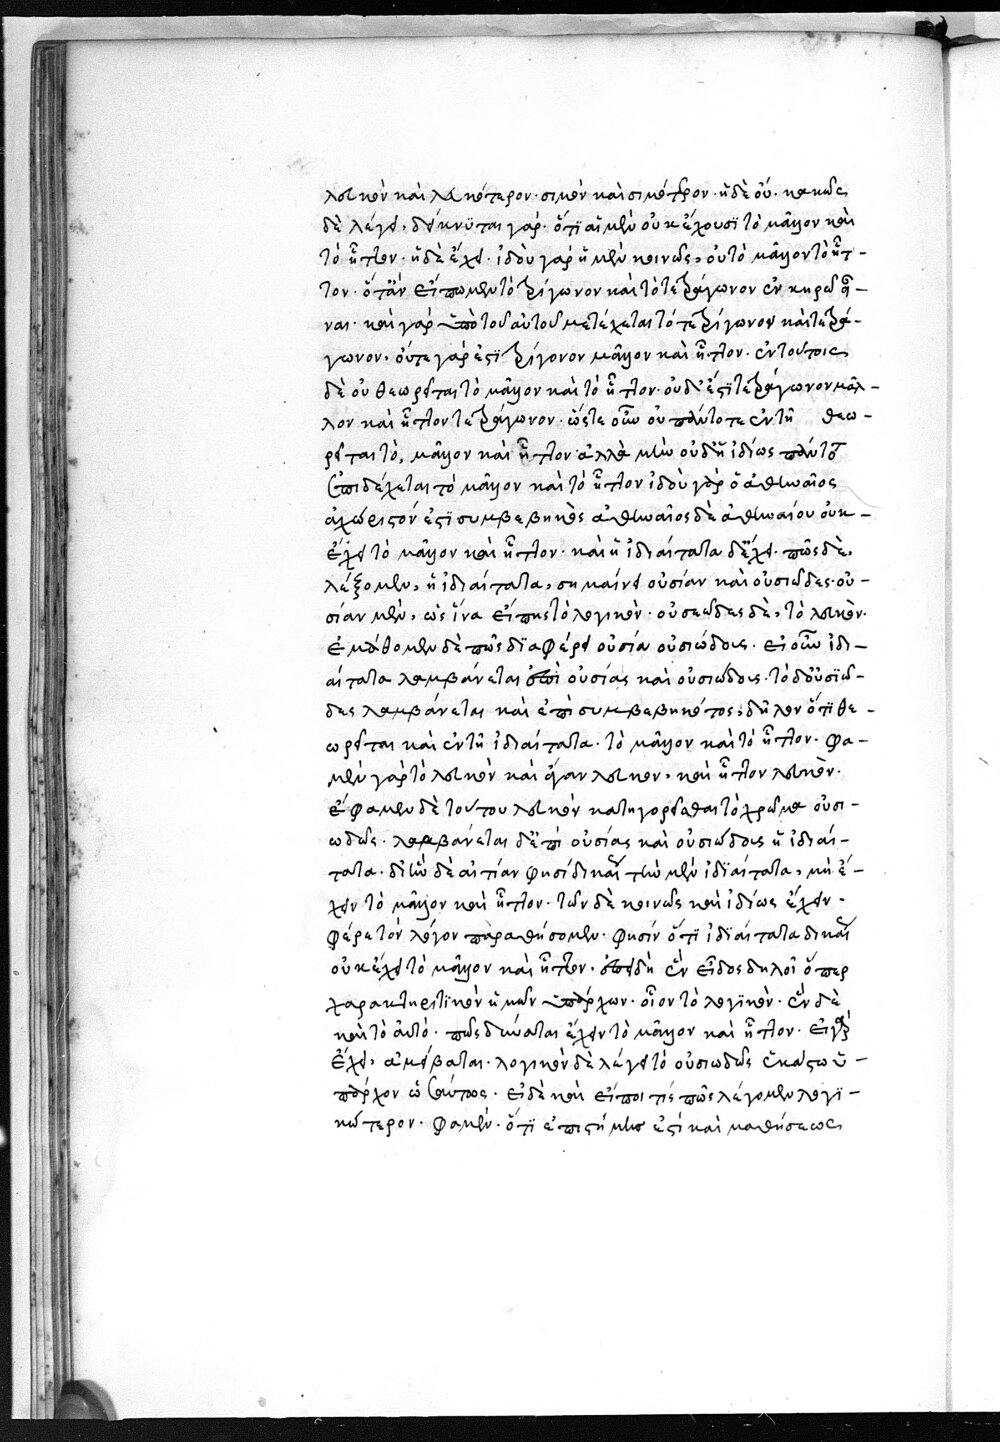 λευκὸν καὶ λευκότερον· σιμὸν καὶ σιμότερον· ἡ δὲ οὐ· κακῶς
δὲ λέγει, δείκνυται γάρ· ὅτι αἱ μὲν οὐκ ἔχουσι τὸ μᾶλλον καὶ
τὸ ἧττον· ἡ δὲ ἔχει· ἰδοὺ γὰρ ἡ μὲν κοινῶς, οὐ τὸ μᾶλλον τὸ ἧτ-
τον· ὅταν εἴπωμεν τὸ τρίγωνον καὶ τὸ τετράγωνον ἐν κηρῷ εἶ-
ναι· καὶ γὰρ ὑπὸ τοῦ αὐτοῦ μετέχεται τό τε τρίγωνον καὶ τετρά-
γωνον· οὔτε γάρ ἐστι τρίγονον μᾶλλον καὶ ἧττον· ἐν τούτοις
δὲ οὐ θεωρεῖται τὸ μᾶλλον καὶ τὸ ἧττον· οὐδ' ἔστι τετράγωνον μᾶλ-
λον καὶ ἧττον τετράγωνον· ὥστε οὖν οὐ πάντοτε ἐν τῇ θεω-
ρεῖται τὸ, μᾶλλον καὶ ἧττον ἀλλὰ μὴν οὐδ' ἡ ἰδίως πάντο
ἐπιδέχεται τὸ μᾶλλον καὶ τὸ ἧττον ἰδοὺ γὰρ ὁ ἀθηναῖος
ἀχώριστόν ἐστι συμβεβηκὸς ἀθηναῖος δὲ ἀθηναίου οὐκ
ἔχει τὸ μᾶλλον καὶ ἧττον· καὶ ἡ ἰδιαίτατα δὲ ἔχει· πῶς δὲ,
λέξομεν, ἡ ἰδιαίτατα, σημαίνει οὐσίαν καὶ οὐσιώδες· οὐ-
σίαν μὲν, ὡς ἵνα εἴπῃς τὸ λογικόν· οὐσιῶδες δὲ, τὸ λευκόν·
ἐμάθομεν δὲ πῶς διαφέρει οὐσία οὐσιώδους· εἰ οὖν ἰδι-
αίτατα λαμβάνεται ἐπὶ οὐσίας καὶ οὐσιώδους· τὸ δ' οὐσιῶ-
δες λαμβάνεται καὶ ἐπὶ συμβεβηκότος, δῆλον ὅτι θε-
ωρεῖται καὶ ἐν τῇ ἰδιαίτατα· τὸ μᾶλλον καὶ τὸ ἧττον· φα-
μὲν γὰρ τὸ λευκὸν καὶ ἄγαν λευκον, καὶ ἧττον λευκόν·
ἔφαμεν δὲ τούτου λευκὸν κατηγορεῖσθαι τὸ χρῶμα οὐσι-
ωδῶς· λαμβάνεται δὲ ἐπὶ οὐσίας καὶ οὐσιώδους ἡ ἰδιαί-
τατα· δι' ἣν δὲ αἰτίαν φησί δικαῖ τὴν μὲν ἰδιαίτατα, μὴ ἔ-
χειν τὸ μᾶλλον καὶ ἧττον· τῶν δὲ κοινῶς καὶ ἰδίως ἔχειν·
φέρε τὸν λόγον παραθήσομεν· φησίν ὅτι ἰδιαίτατα δικαῖ
οὐκ ἔχει τὸ μᾶλλον καὶ ἧττον· ἐπειδὴ ἓν εἶδος δηλοῖ ὅπερ
χαρακτηριστικὸν ἡμῶν ὑπάρχων· οἷον τὸ λογικόν· ἓν δὲ
καὶ τὸ αὐτό· πῶς δύναται ἔχειν τὸ μᾶλλον καὶ ἧττον· εἰ γὰρ
ἔχει, ἀμείβεται· λογικὸν δὲ λέγει τὸ οὐσιωδῶς ἑκάστω ὑ-
πάρχον ὡσαύτως· εἰ δὲ καὶ εἴποι τίς πῶς λέγομεν λογι-
κώτερον· φαμὲν· ὅτι ἐπιστήμης ἐστί καὶ μαθήσεως